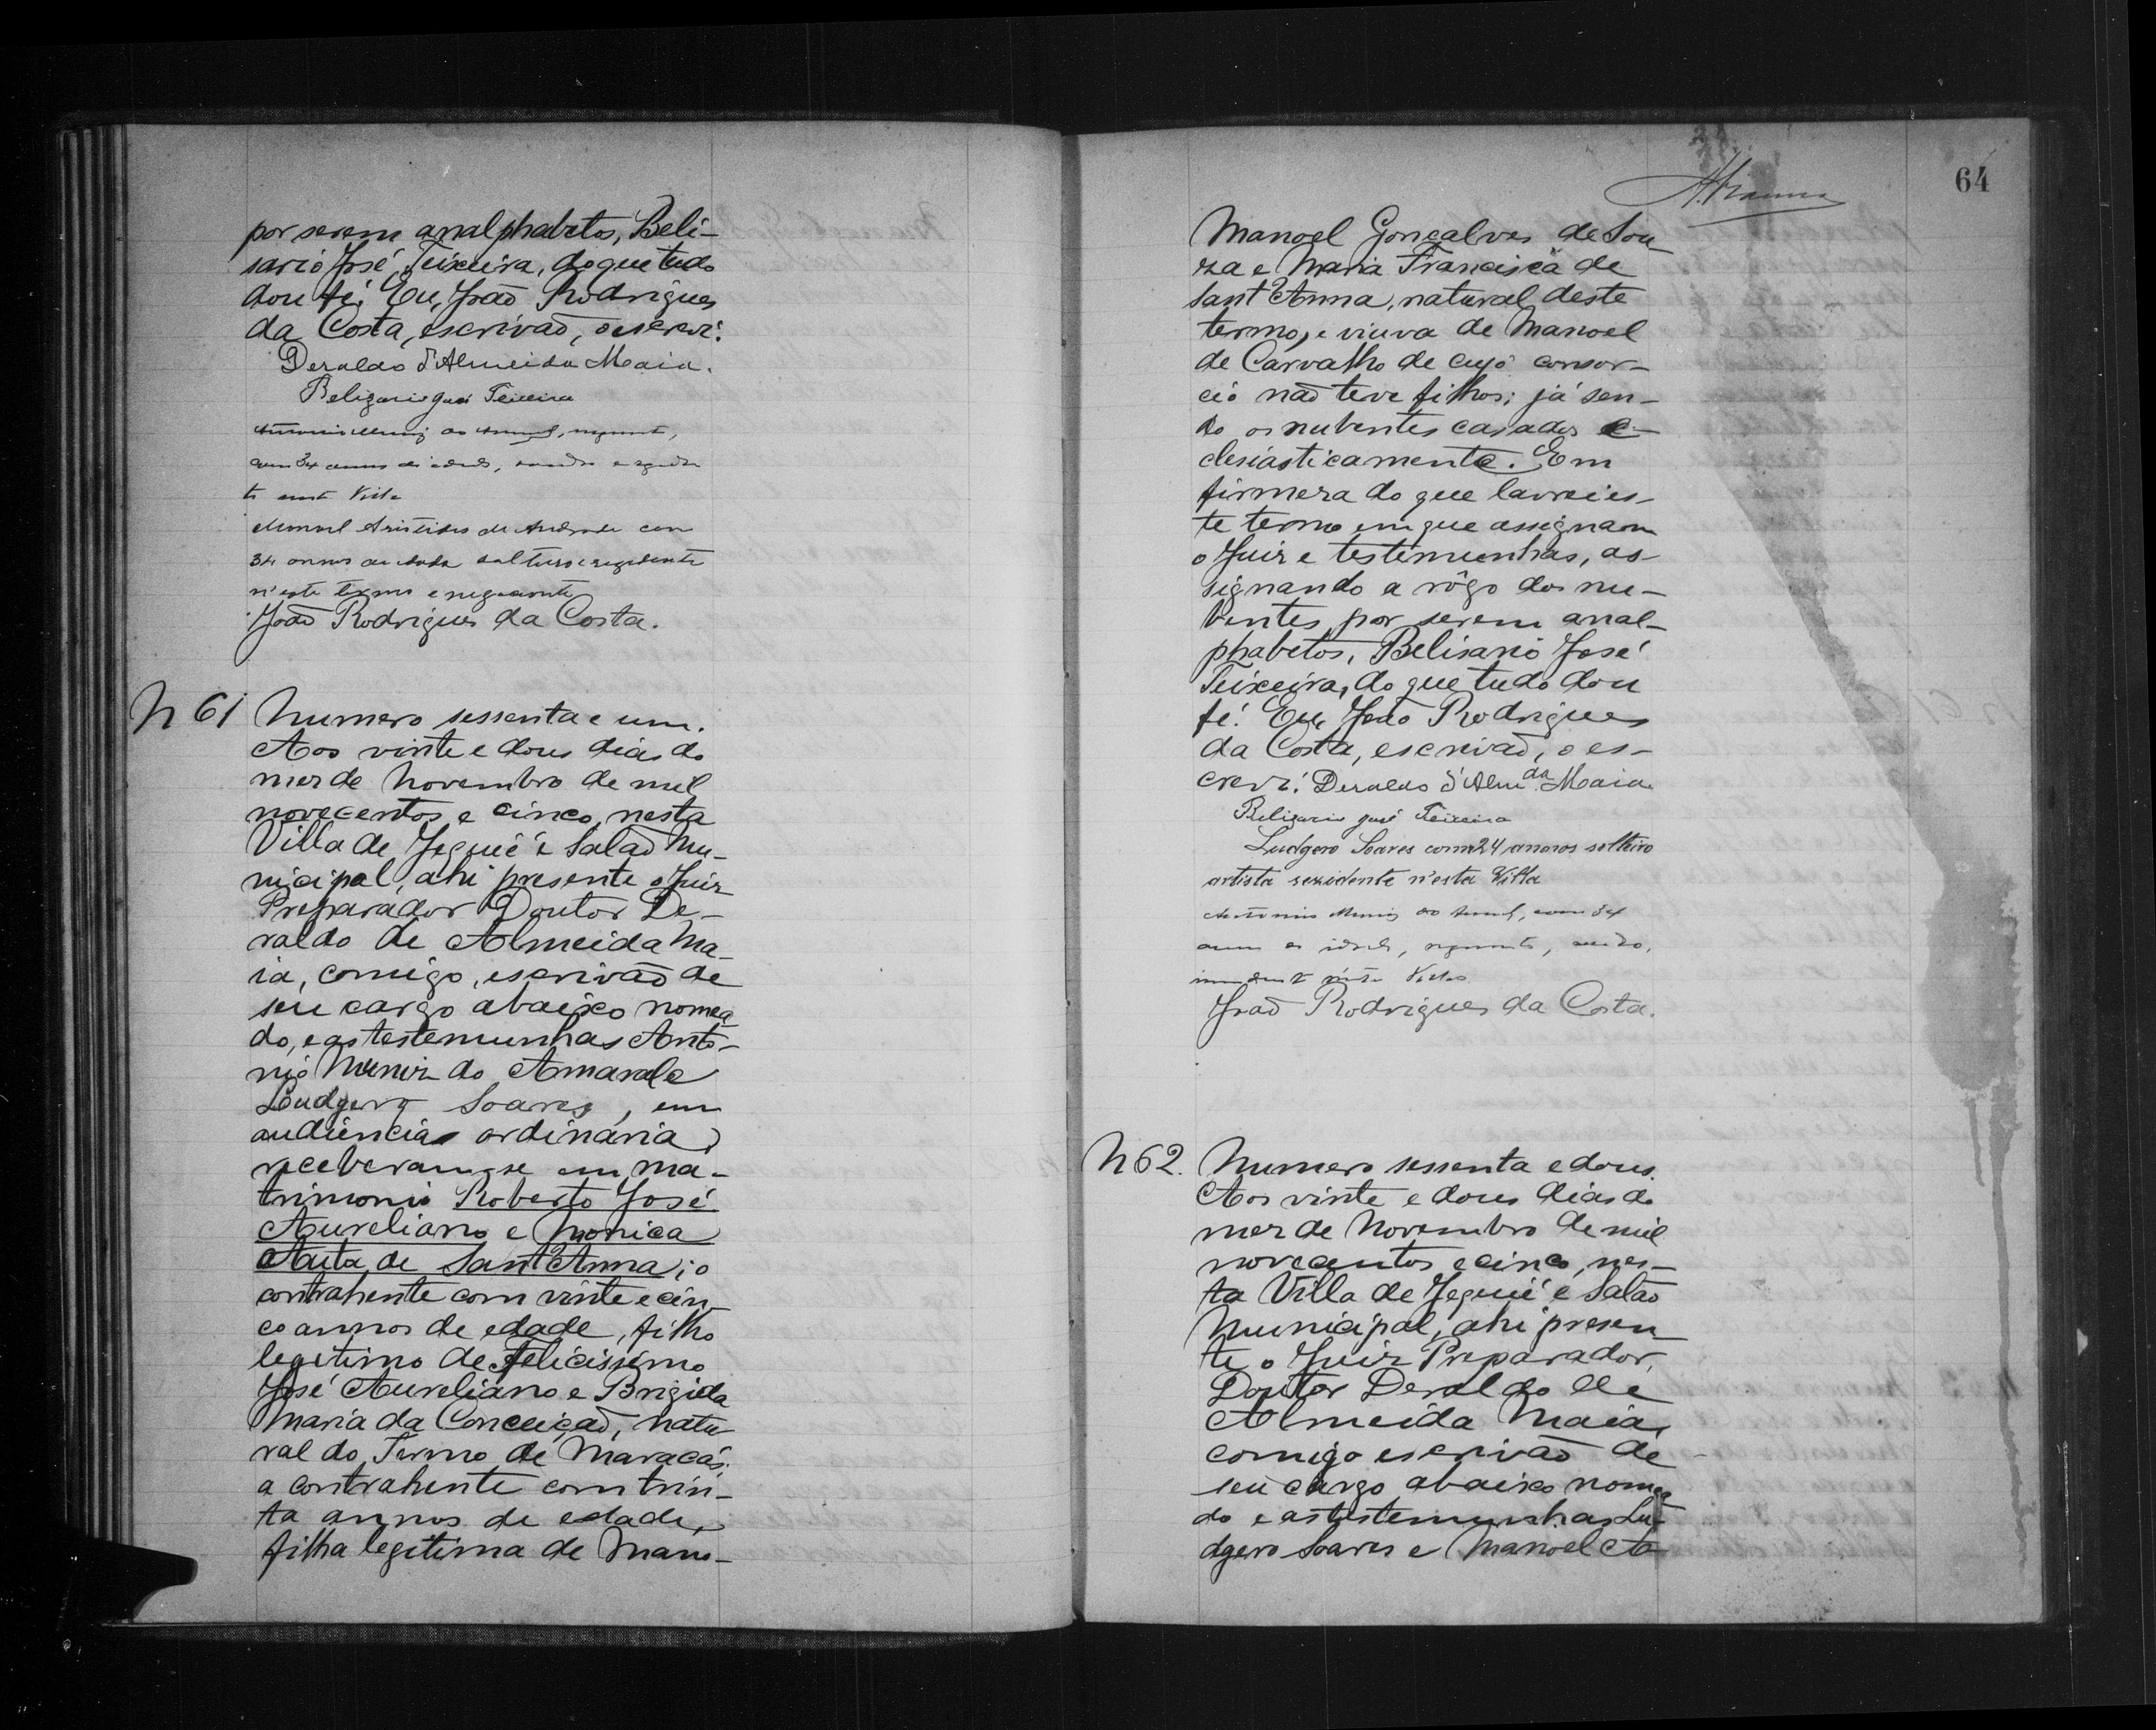 por serem analphabetos, Beli-
sario José Teixeira, do que tudo
dou fé. Eu, João Rodrigues
da Costa, escrivão, o escrevi.
Deraldo d'Almeida Maia.
Belizario José Teixeira
Antonio Muniz do Amaral, negociante,
com 34 annos de edade,
Villa
Manoel Aristides de Andrade com
34 annos de idade solteiro e rezidente
n'este termo e negociante
João Rodrigues da Costa.
N 61 Numero sessenta e um.
Aos vinte e dous dias do
mez de Novembro de mil
novecentos e cinco, nesta
Villa de Jequié e Salão Mu-
nicipal, ahi presente o Juiz
Preparador Doutor De-
raldo de Almeida Ma-
ia, comigo, escrivão de
seu cargo abaixo nomea
do, e as testemunhas Anto-
nio Muniz do Amaral e
Loudgero Soares, em
audiencias ordinaria,
receberam-se em ma-
trimonio Roberto José
Aureliano e Monica
Auta de Sant'Anna; o
contrahente com vinte e cin-
co annos de edade, filho
legitimo de Felicissimo
José Aureliano e Brigida
Maria da Conceição, natu
ral do Termo de Maracás;
a contrahente com trin-
ta annos de edade,
filha legitima de Mano-
64
Manoel Gonçalves de Sou
za e Maria Francisca de
Sant'Anna, natural deste
termo, e viuva de Manoel
de Carvalho de cujo consor-
cio não teve filhos; já sen-
do os nubentes casados e-
clesiasticamente. Em
firmeza do que lavrei es-
te termo em que assignam
o Juiz e testemunhas, as-
signando a rôgo dos nu-
bentes, por serem anal-
phabetos, Belisario José
Teixeira, do que tudo dou
fé. Eu, João Rodrigues
da Costa, escrivão, o es-
crevi. Deraldo d'Alm.da Maia
Belizario José Teixeira
Ludgero Soares com 24 annos solteiro
artista rezidente n'esta Villa
Antonio Muniz do Amaral, com 34
annos de idade, negociante,
n'esta Villa
João Rodrigues da Costa.
N 62. Numero sessenta e dous.
Aos vinte e dous dias do
mez de Novembro de mil
novecentos e cinco, nes-
ta Villa de Jequié e Salão
Municipal, ahi presen-
te o Juiz Preparador,
Doutor Deraldo de
Almeida Maia,
comigo escrivão de
seu cargo abaixo nomea
do e as testemunhas Lu-
dgero Soares e Manoel A